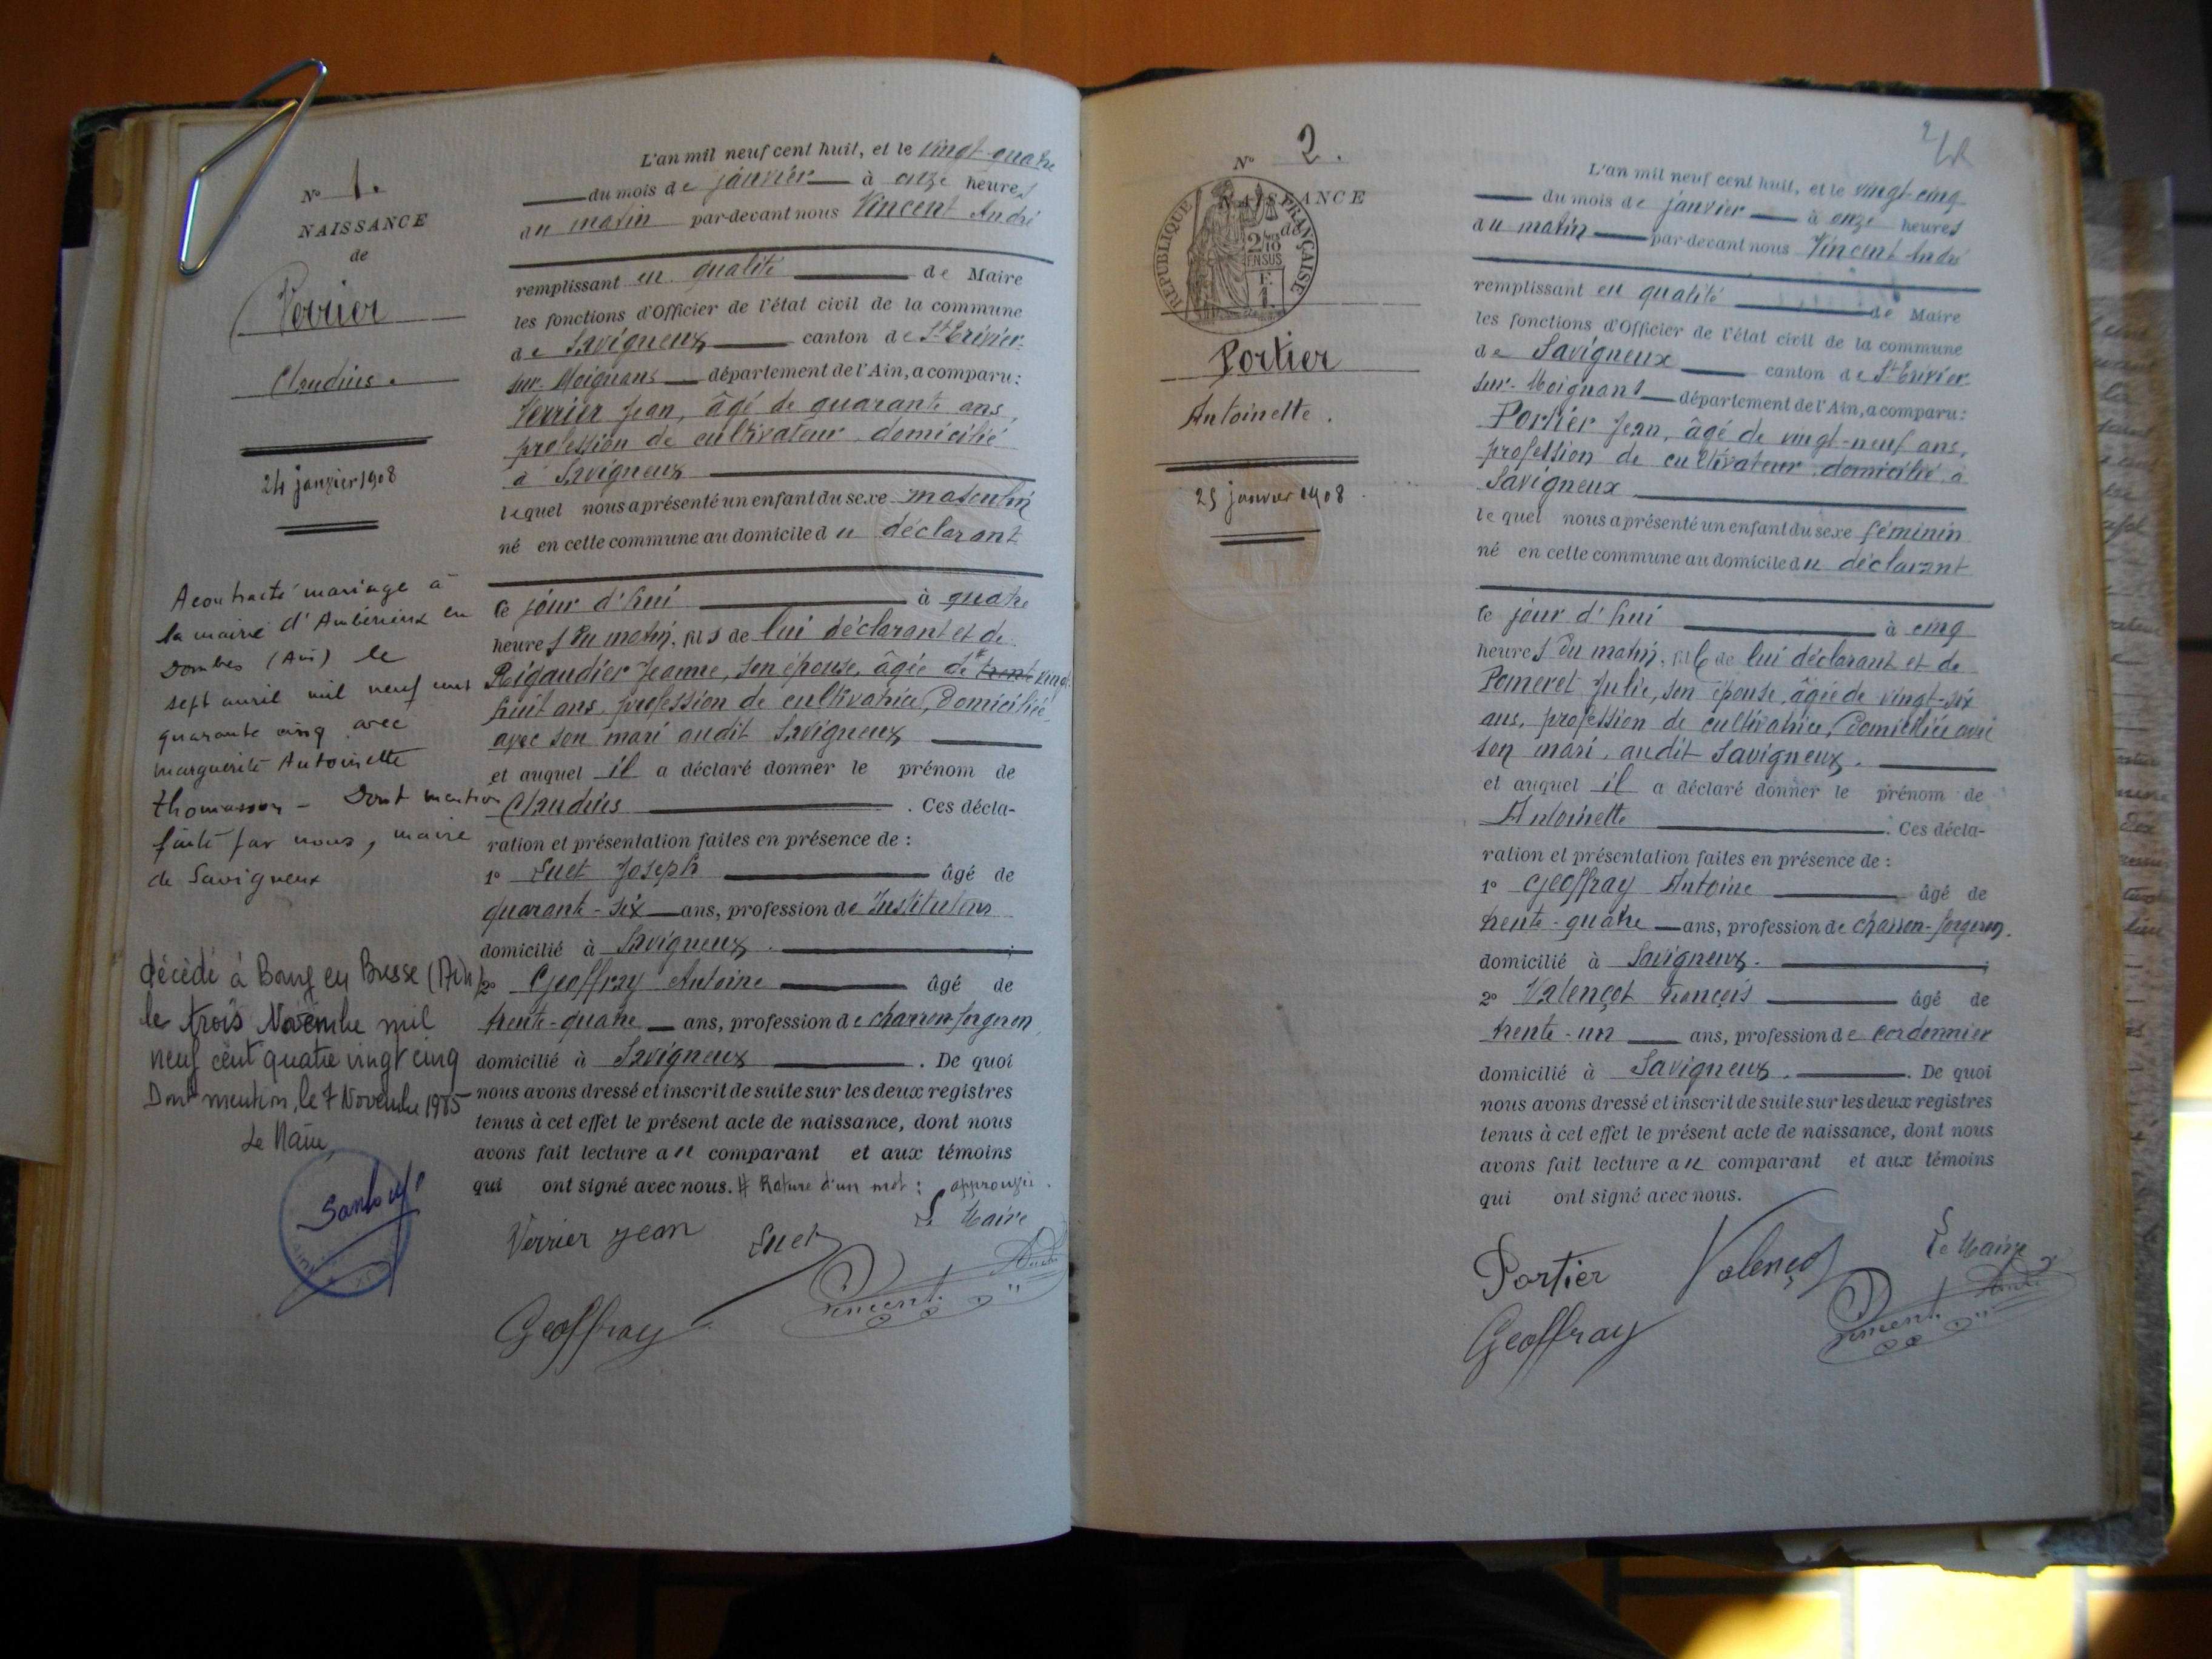 N° 1.
NAISSANCE
de
Verrier
Claudius.
24 janvier 1908
A contracté mariage à
la mairie d'Ambérieux en
Dombes (Ain) le
sept avril mil neuf cent
quarante cinq avec
Marguerite Antoinette
Thomasson - Dont mention
faite par nous, maire
de Savigneux
décédé à Bourg en Bresse (Ain)
le trois Novembre mil
neuf cent quatre vingt cinq
Dont mention, le 7 Novembre 1985
Le Maire,
L'an mil neuf cent huit, et le vingt-quatre
du mois de janvier à onze heures
du matin par-devant nous Vincent André
remplissant en qualité de Maire
les fonctions d'Officier de l'état civil de la commune
de Savigneux canton de St Trivier-
sur-Moignans département de l'Ain, a comparu:
Verrier Jean, âgé de quarante ans,
profession de cultivateur, domicilié
à Savigneux
lequel nous a présenté un enfant du sexe masculin
né en cette commune au domicile du déclarant
ce jour d'hui à quatre
heures du matin, fils de lui déclarant et de
Rigaudier Jeanne, son épouse, âgée de # trente vingt
huit ans, profession de cultivatrice, domiciliée
avec son mari audit Savigneux
et auquel il a déclaré donner le prénom de
Claudius . Ces décla-
ration et présentation faites en présence de :
1° Suet Joseph âgé de
quarante-six ans, profession de Instituteur
domicilié à Savigneux ;
2° Geoffray Antoine âgé de
trente-quatre ans, profession de charron-forgeron
domicilié à Savigneux . De quoi
nous avons dressé et inscrit de suite sur les deux registres
tenus à cet effet le présent acte de naissance, dont nous
avons fait lecture au comparant et aux témoins
qui ont signé avec nous. # Rature d'un mot : approuvée.
Le Maire
Verrier Jean Suet
Vincent André
Geoffray
N° 2.
NAISSANCE
de
RÉPUBLIQUE FRANÇAISE
2/10
EN SUS
Portier
Antoinette.
25 janvier 1908
2
L'an mil neuf cent huit, et le vingt-cinq
du mois de janvier à onze heures
du matin par-devant nous Vincent André
remplissant en qualité de Maire
les fonctions d'Officier de l'état civil de la commune
de Savigneux canton de St Trivier-
sur-Moignans département de l'Ain, a comparu:
Portier Jean, âgé de vingt-neuf ans,
profession de cultivateur, domicilié à
Savigneux
lequel nous a présenté un enfant du sexe féminin
né en cette commune au domicile du déclarant
ce jour d'hui à cinq
heures du matin, fille de lui déclarant et de
Pomeret Julie, son épouse, âgée de vingt-six
ans, profession de cultivatrice, domiciliée avec
son mari, audit Savigneux.
et auquel il a déclaré donner le prénom de
Antoinette . Ces décla-
ration et présentation faites en présence de :
1° Geoffray Antoine âgé de
trente-quatre ans, profession de charron-forgeron.
domicilié à Savigneux. ;
2° Valençot François âgé de
trente-un ans, profession de cordonnier
domicilié à Savigneux. . De quoi
nous avons dressé et inscrit de suite sur les deux registres
tenus à cet effet le présent acte de naissance, dont nous
avons fait lecture au comparant et aux témoins
qui ont signé avec nous.
Le Maire
Portier Valençot
Vincent André
Geoffray